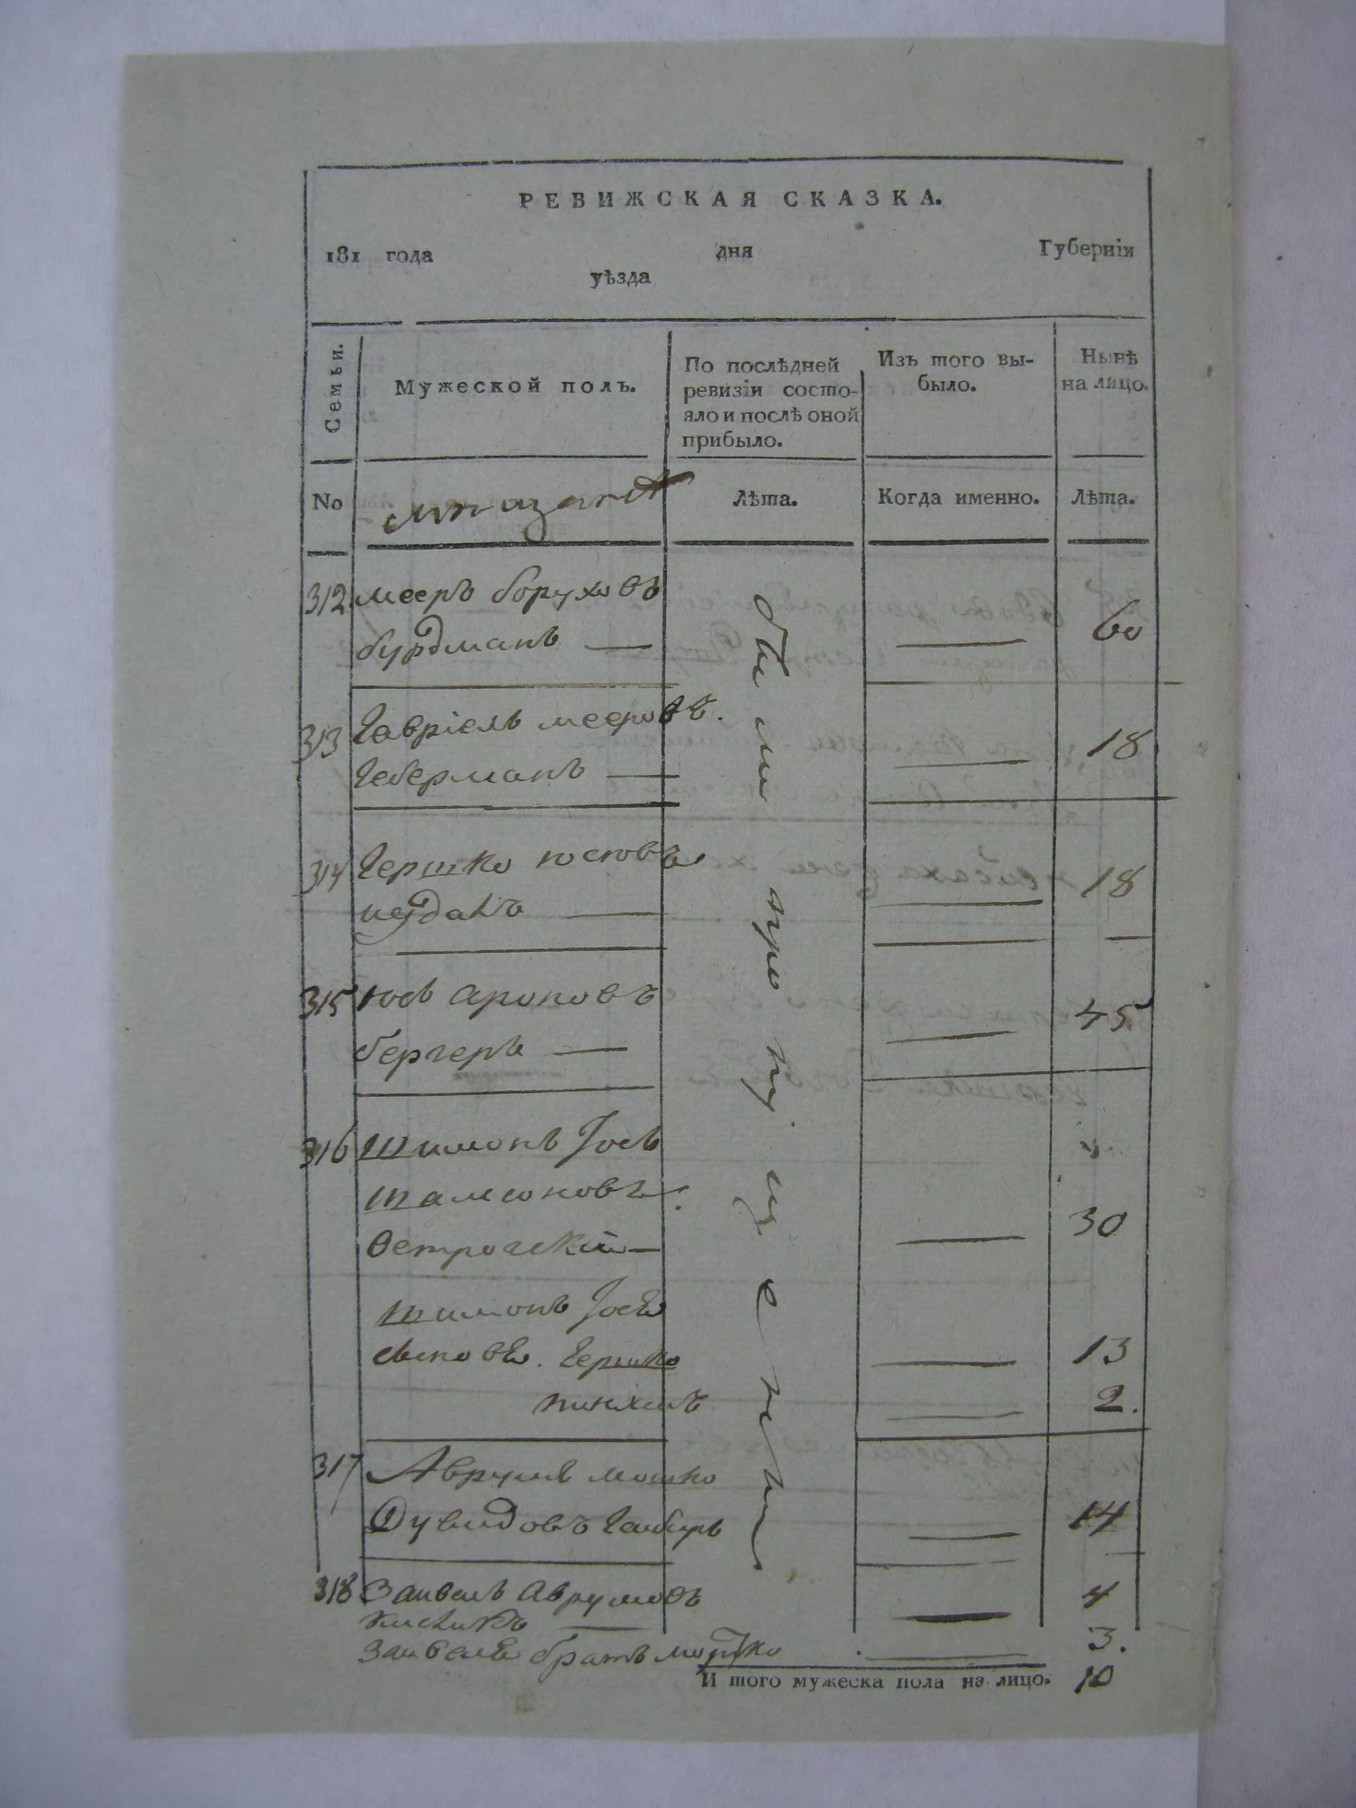 РЕВИЖСКАЯ СКАЗКА.
181 года дня Губернія
уѣзда
Семьи.
Мужеской полъ.
По послѣдней
ревизіи состо-
яло и послѣ оной
прибыло.
Изъ того вы-
было.
Нынѣ
на лицо.
No
Лѣта.
Когда именно.
Лѣта.
312 мееръ боруховъ
бурдманъ — — 60
были пропущены
313 Гавріель мееровъ.
Геберманъ — — 18
314 Гершко юсіовъ
— 18
315 Юсь ароновъ
бергеръ — — 45
316 Шимонъ Іось
Шамсоновъ
Острогскій — — 30
Шимонъ Іося
сыновья. Гершко — 13
пинхасъ — 2.
317 Аврумъ мошко
Дувидовъ — 14
318 Занвель Аврумовъ — 4
Занвеля братъ мошко — 3.
И того мужеска пола на лицо. 10